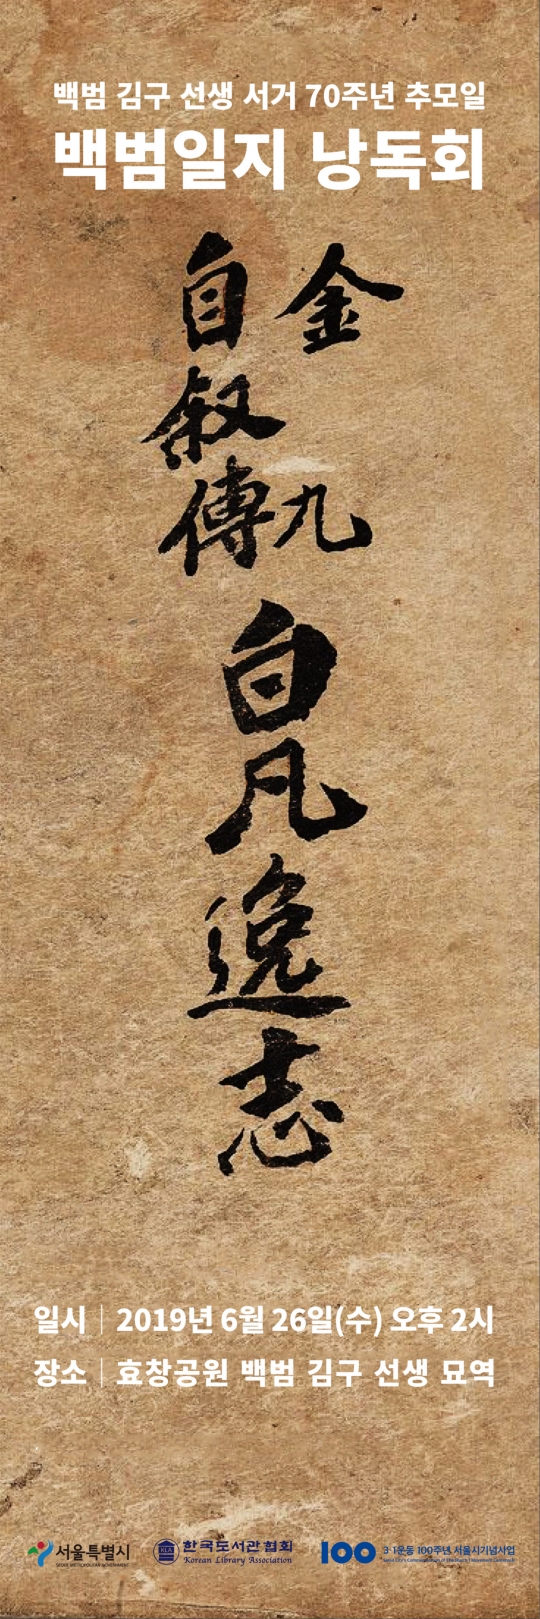 백범 김구 선생 서거 70주년 추모일
백범일지 낭독회
金九
自叙傳
白凡逸志
일시 | 2019년 6월 26일(수) 오후 2시
장소 | 효창공원 백범 김구 선생 묘역
서울특별시
SEOUL METROPOLITAN GOVERNMENT
한국도서관협회
Korean Library Association
100
3·1운동 100주년 서울시기념사업